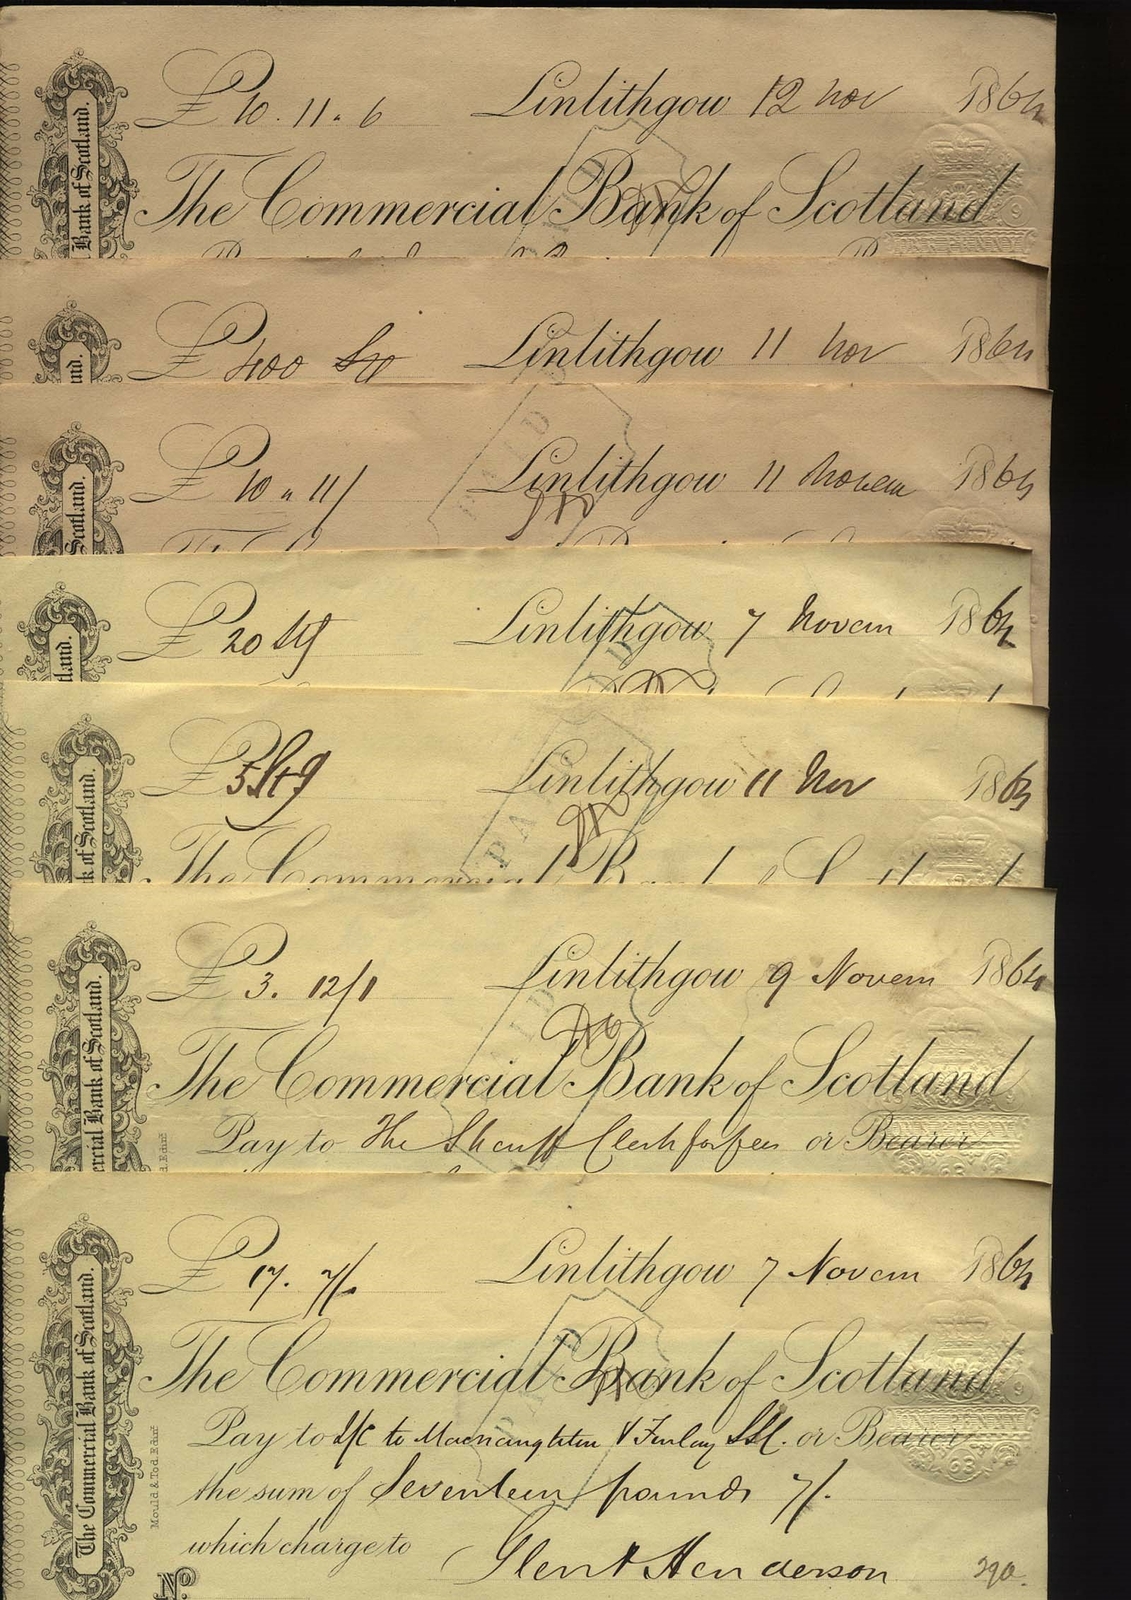 £10.11.6 Linlithgow 12 Nov 1864
Bank of Scotland.
The Commercial Bank of Scotland
£400 Stg Linlithgow 11 Nov 1864
£10 " 11/ Linlithgow 11 Novem 1864
Scotland.
£20 Stg Linlithgow 7 Novem 1864
£5 Stg Linlithgow 11 Nov 186
PA
k of Scotland.
The Commercial Bank of Scotland
£3. 12/1 Linlithgow 9 Novem 1864
The Commercial Bank of Scotland
ercial Bank of Scotland.
Pay to The Sheriff Clerk for fees or Bearer
£17. 7/. Linlithgow 7 Novem 1864
The Commercial Bank of Scotland
The Commercial Bank of Scotland.
Pay to L/C to Macnaughton & Finlay SSC. or Bearer
the sum of Seventeen pounds 7/.
Mould & Tod. Edinr
which charge to
Glen & Henderson 290.
No.